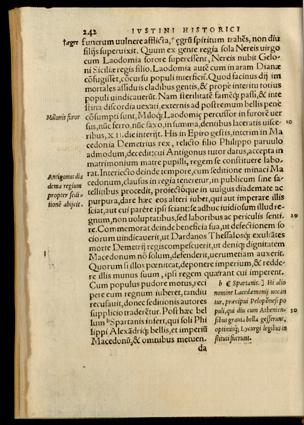 242 IVSTINI HISTORICI
funerum uulnere afflicta, ęgrũ spiritum trahẽs, non diu
filijs superuixit. Quum ex gente regia sola Nereis uirgo
cum Laodomia sorore superessent, Nereis nubit Geloni
Siciliæ regis filio. Laodomia autẽ cum in aram Dianæ
cõfugisset, cõcursu populi interficif. Quod facinus dij immortales
assiduis cladibus gentis, & prope interitu totius
populi uindicauerunt. Nam sterilitatẽ famẽq́; passi, & intestina
discordia uexati, externis ad postremum bellis penè
cõsumpti sunt,
percussor in furorẽ uersus,
nũc ferro, nũc saxo, in summa, dentibus laceratis uisceribus,
XII. die interijt. His in Epiro gestis, interim in Macedonia
Demetrius rex, relicto filio Philippo paruulo
admodum, decedit: cui Antigonus tutor datus, accepta in
matrimonium matre pupilli, regem se constituere laborat.
Interiecto deinde tempore, cum seditione minaci Macedonum,
clausus in regia teneretur, in publicum sine satellitibus
procedit, proiectoq́ue in uulgus diademate ac
purpura, dare hæc eos alteri iubet, qui aut imperare illis
sciat, aut cui parêre ipsi sciant: se adhuc inuidiosum illud regnum,
non uoluptatibus, sed laboribus ac periculis sentire.
Commemorat deinde beneficia sua, ut defectionem sociorum
uindicauerit, ut Dardanos Thessalosq́; exultãtes
morte Demetrij regis compescuerit, ut deniq́; dignitatem
Macedonum nõ solum, defenderit, uerumetiam auxerit.
Quorum si illos pœniteat, deponere imperium, & reddere
illis munus suum, ipsi regem quærant cui imperent.
Cum populus pudore motus, recipere
eum regnum iuberet, tandiu
recusauit, donec seditionis autores
supplicio traderẽtur. Post hæc bellum
ᵇSpartanis infert, qui soli Philippi
Alexãdriq́; bellis, et imperiũ
Macedonũ, & omnibus metuen
da
Militaris furor
Antigonus diadema
regium
propter seditionẽ
abijcit.
20
b ¶ Spartanis.] Hi alio
nomine Lacedæmonij uocantur,
præcipui Peloponesi
populi, qui diu cum Atheniensibus
grauia bella gesserunt,
optimisq́; Lycurgi legibus instituti
fuerunt.